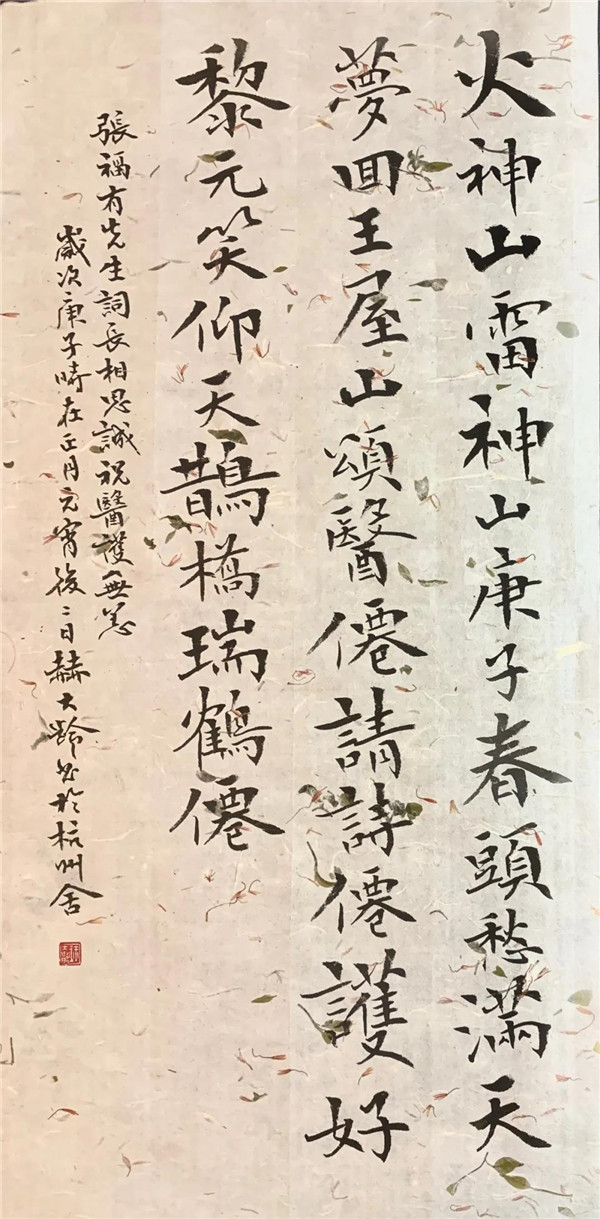 火神山雷神山庚子春頭愁滿天
夢回王屋山頌醫僊請詩僊護好
黎元笑仰天鵲橋瑞鶴僊
張福有先生詞長相思誠祝醫護無恙
歲次庚子時在正月元宵後二日赫大齡書於杭州舍